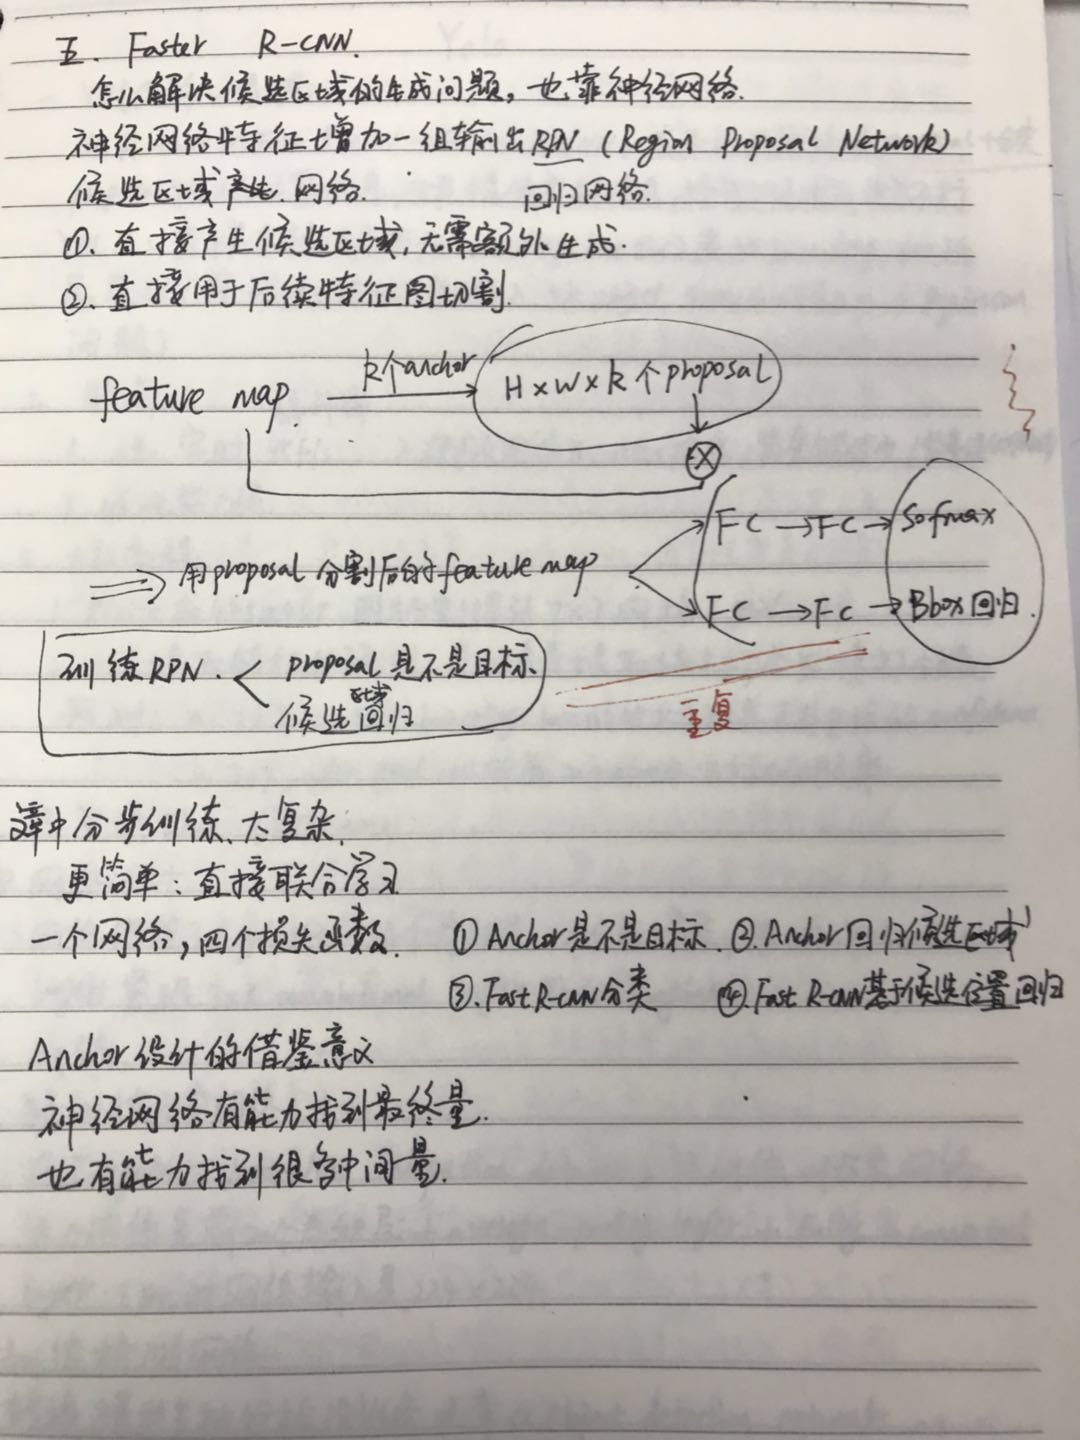 五. Faster R-CNN.
怎么解决候选区域的生成问题，也靠神经网络.
神经网络特征增加一组输出RPN (Region Proposal Network)
候选区域产生网络. 回归网络.
①. 直接产生候选区域, 无需额外生成.
②. 直接用于后续特征图切割.
feature map k个anchor H×W×k个proposal
⊗
FC → FC → Sofmax
⇒ 用proposal分割后的feature map
FC → FC → Bbox回归.
训练RPN. < proposal是不是目标.
候选区域回归
重复
文章中分步训练、太复杂.
更简单: 直接联合学习
一个网络, 四个损失函数. ①Anchor是不是目标. ②.Anchor回归候选区域
③.Fast R-CNN分类 ④.Fast R-CNN基于候选位置回归
Anchor设计的借鉴意义
神经网络有能力找到最终量.
也有能力找到很多中间量.